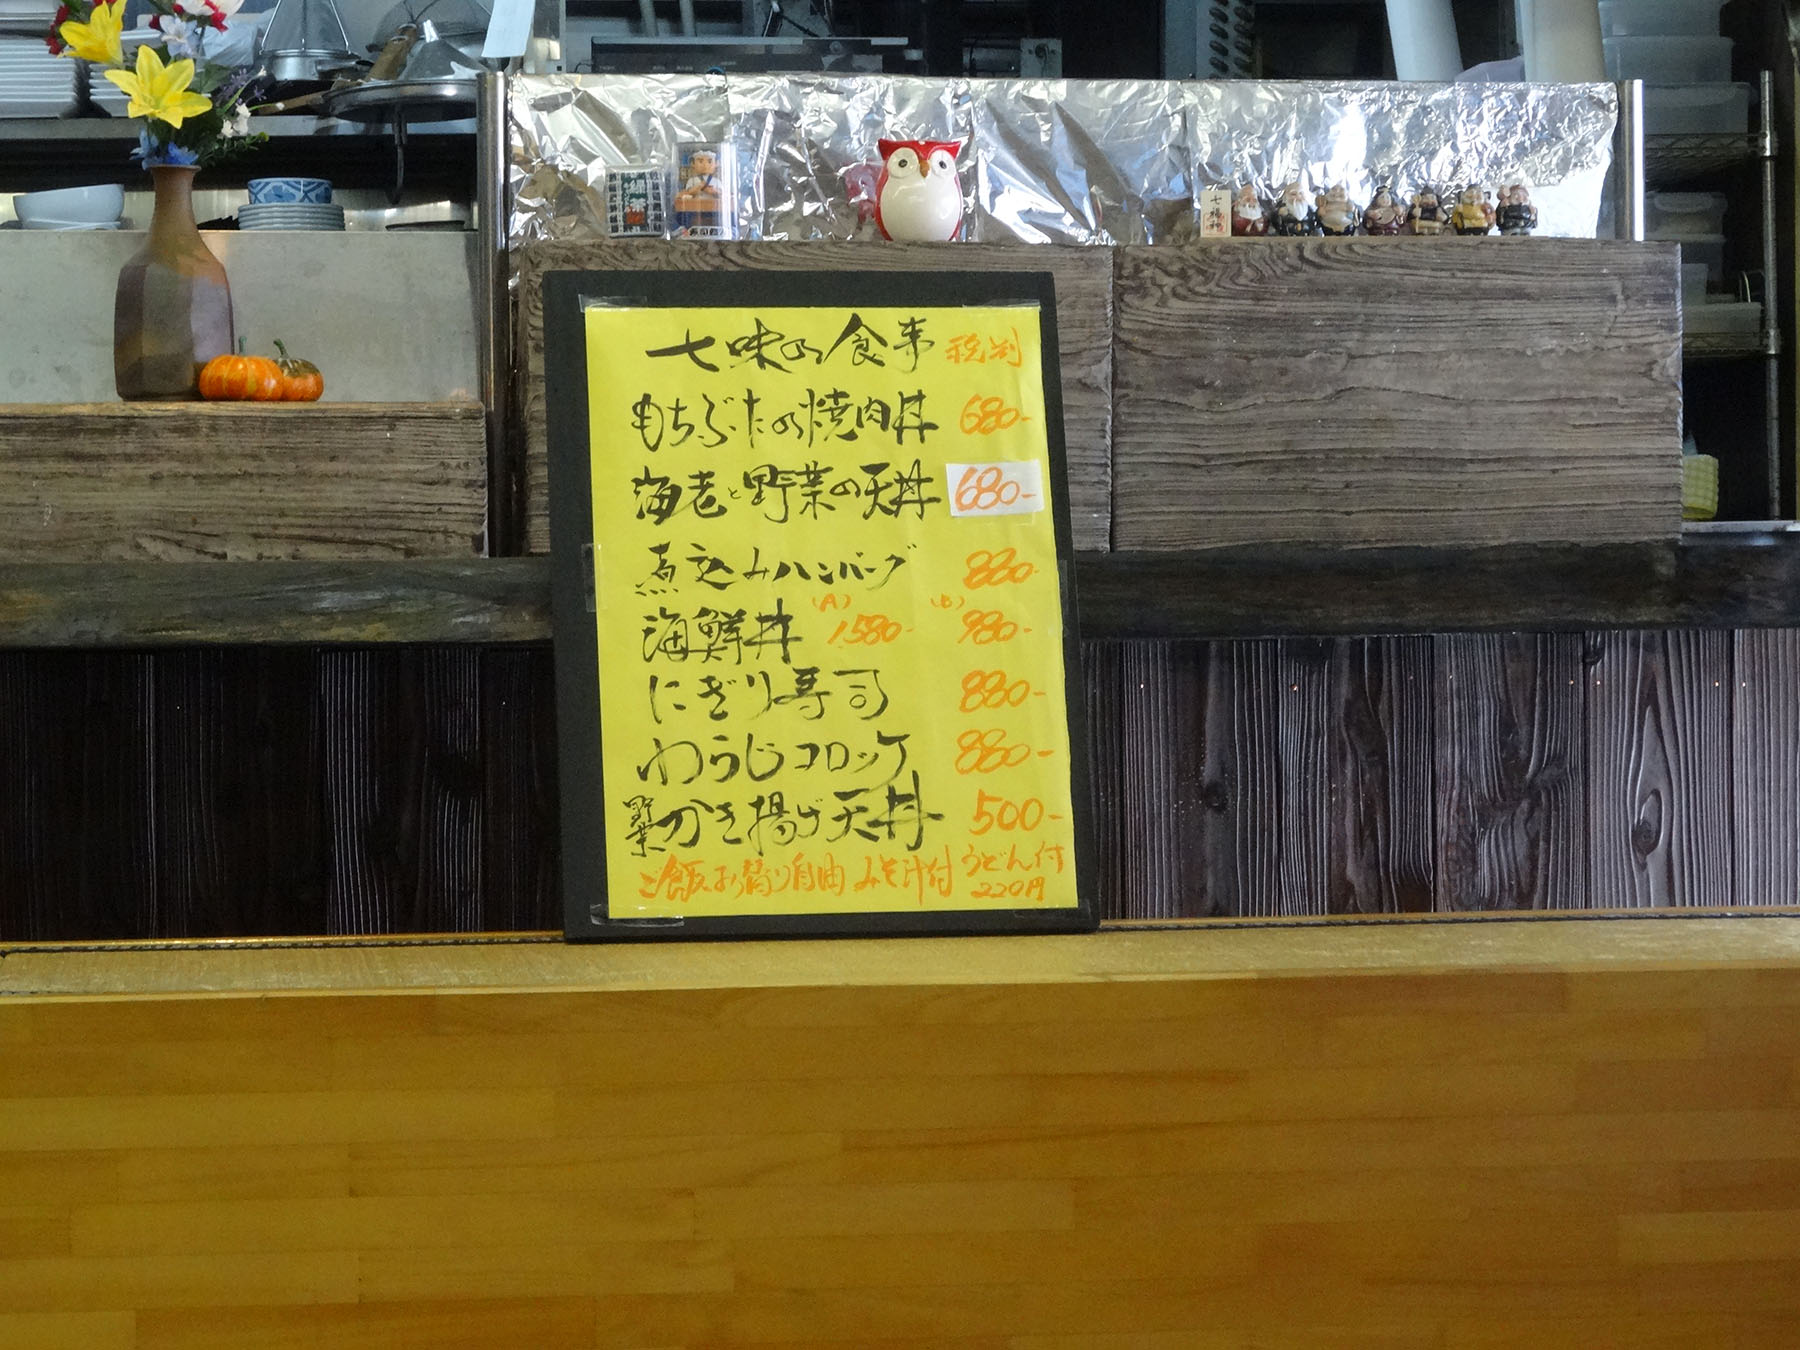 緑茶
七福神
七味の食事 税別
もちぶたの焼肉丼 680-
海老と野菜の天丼 680-
煮込みハンバーグ 880-
海鮮丼 (A) 1,580- (B) 980-
にぎり寿司 880-
わらじコロッケ 880-
野菜かき揚げ天丼 500-
ご飯お替り自由 みそ汁付 うどん付
220円